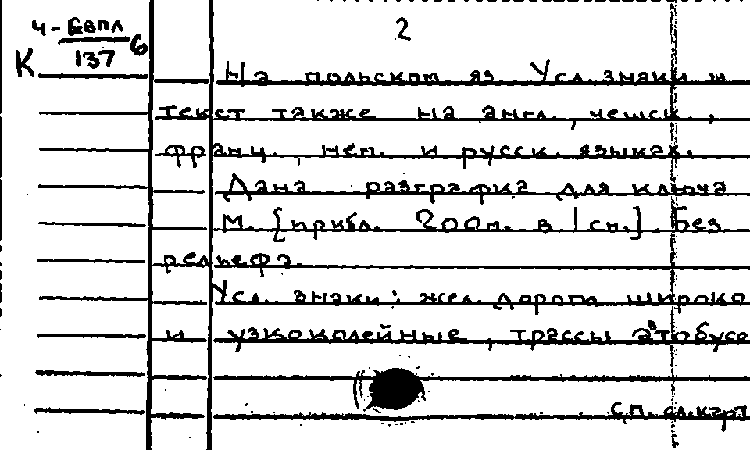 Ч-Евпл
2
К 137 б
На польском яз Усл. знаки и
текст также на англ., чешск.,
франц., нем. и русск. языках.
Дана разграфка для ключа
М. [прибл. 200м. в 1 см.]. Без
рельефа.
Усл. знаки: жел. дороги широко
и узкоколейные, трассы автобусо
см. сл. карт